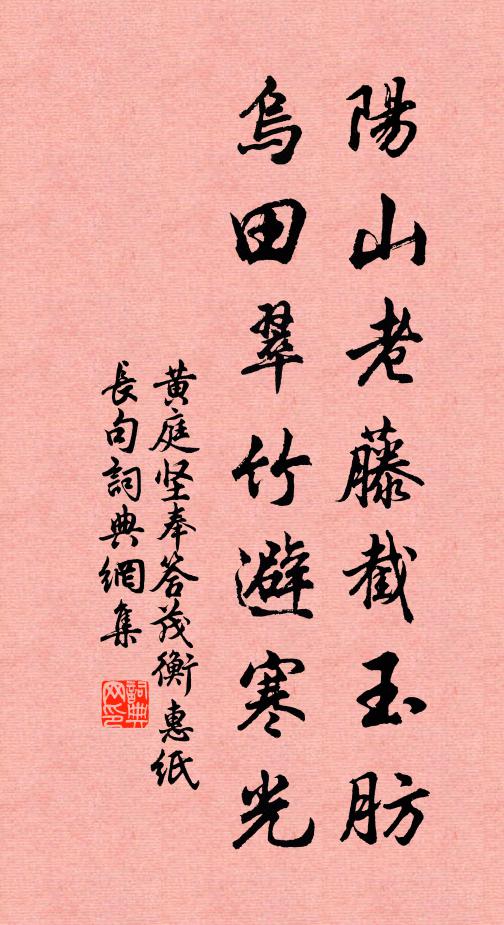 陽山老藤截玉肪
烏田翠竹避寒光
黄庭坚奉答茂衡惠紙
長句詞典網集
詞典
网印